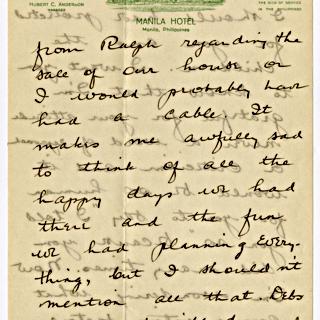 HUBERT C. ANDERSON
MANILA HOTEL
Manila, Philippines
THE SIGN OF SERVICE
from Ralph regarding the
sale of our house or
I would probably have
had a cable. It
makes me awfully sad
to think of all the
happy days we had
there and the fun
we had planning every-
thing, but I shouldn't
mention all that. Debs